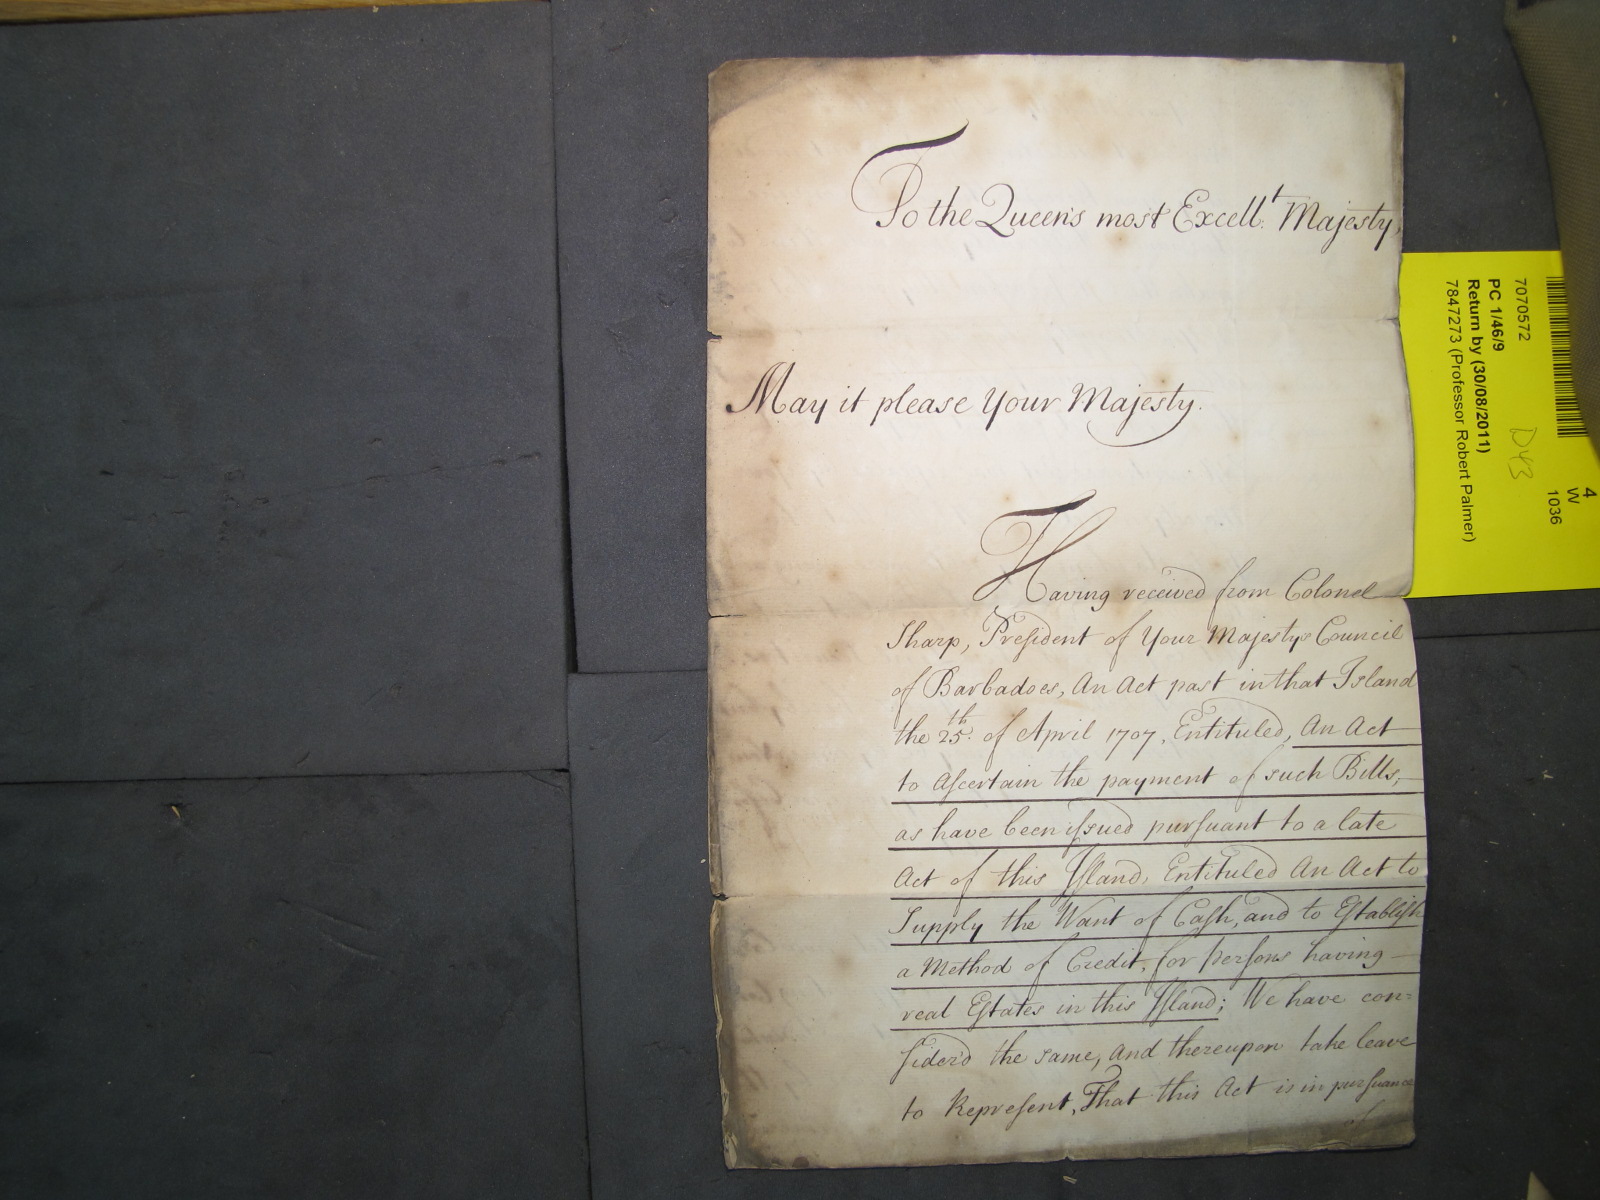 To the Queen's most Excell.t Majesty,
May it please Your Majesty.
Having received from Colonel
Sharp, President of Your Majestys Council
of Barbadoes, An Act past in that Island
the 25th. of April 1707, Entituled, An Act
to Ascertain the payment of such Bills,
as have been issued pursuant to a late
Act of this Island, Entituled An Act to
Supply the Want of Cash, and to Establish
a Method of Credit, for persons having
real Estates in this Island; We have con=
sider'd the same, and thereupon take leave
to Represent, That this Act is in pursuance
of
7070572
PC 1/46/9
Return by (30/08/2011)
7847273 (Professor Robert Palmer)
D43
4
W
1036